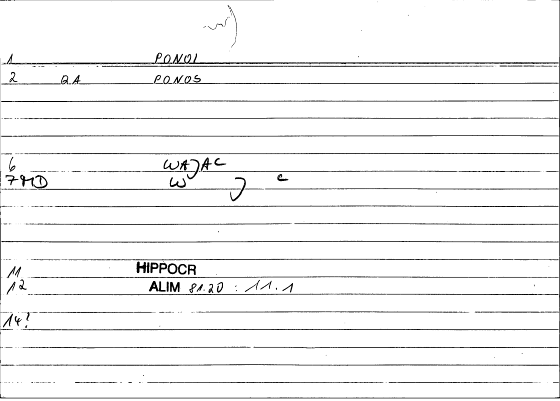 1 PONOI
2 QA PONOS
6 WAJAC
7 MD W J C
11 HIPPOCR
12 ALIM 81.20 : 11.1
14?